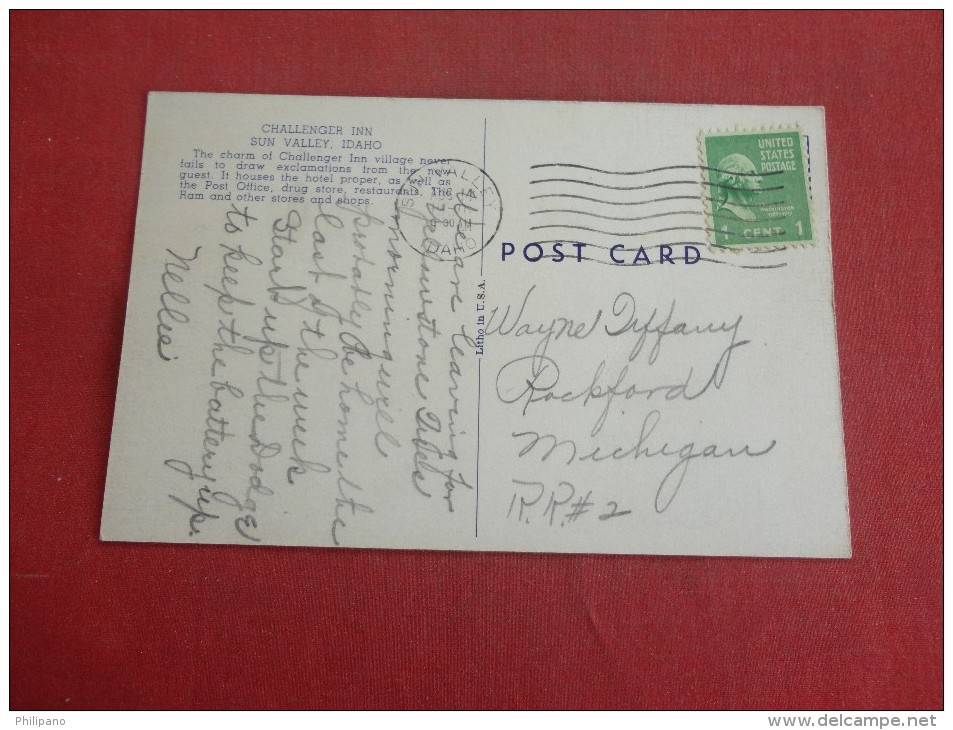 CHALLENGER INN
SUN VALLEY, IDAHO
The charm of Challenger Inn village never
fails to draw exclamations from the new
guest. It houses the hotel proper, as well as
the Post Office, drug store, restaurants, The
Ram and other stores and shops.
We are leaving for
morning will
probably be home the
last of the week
Start up the Dodge
to keep the battery up.
Nellie
Litho in U.S.A.
VALLEY
IDAHO
UNITED
STATES
POSTAGE
WASHINGTON
1 CENT 1
POST CARD
Wayne Tiffany
Rockford
Michigan
R.R.#2
Philipano
www.delcampe.net